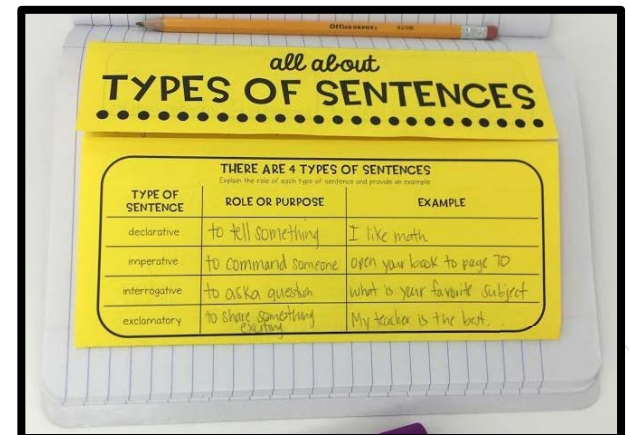 OFFICE DEPOT
all about
TYPES OF SENTENCES
THERE ARE 4 TYPES OF SENTENCES
Explain the role of each type of sentence and provide an example
TYPE OF SENTENCE ROLE OR PURPOSE EXAMPLE
declarative to tell something I like math
imperative to command someone open your book to page 70
interrogative to ask a question what is your favorite subject
exclamatory to share something exciting My teacher is the best.